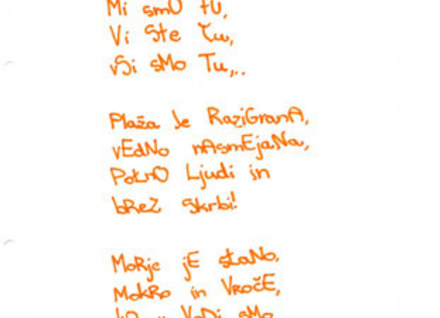 Mi smO tU,
Vi Ste Tu,
vSi sMo Tu,..
Plaža Je RaziGranA,
vEdNo nAsmEjaNa,
PoLnO Ljudi in
breZ Skrbi!
MoRje jE sLaNo,
MokRo in VročE,
ko v VoDi sMo